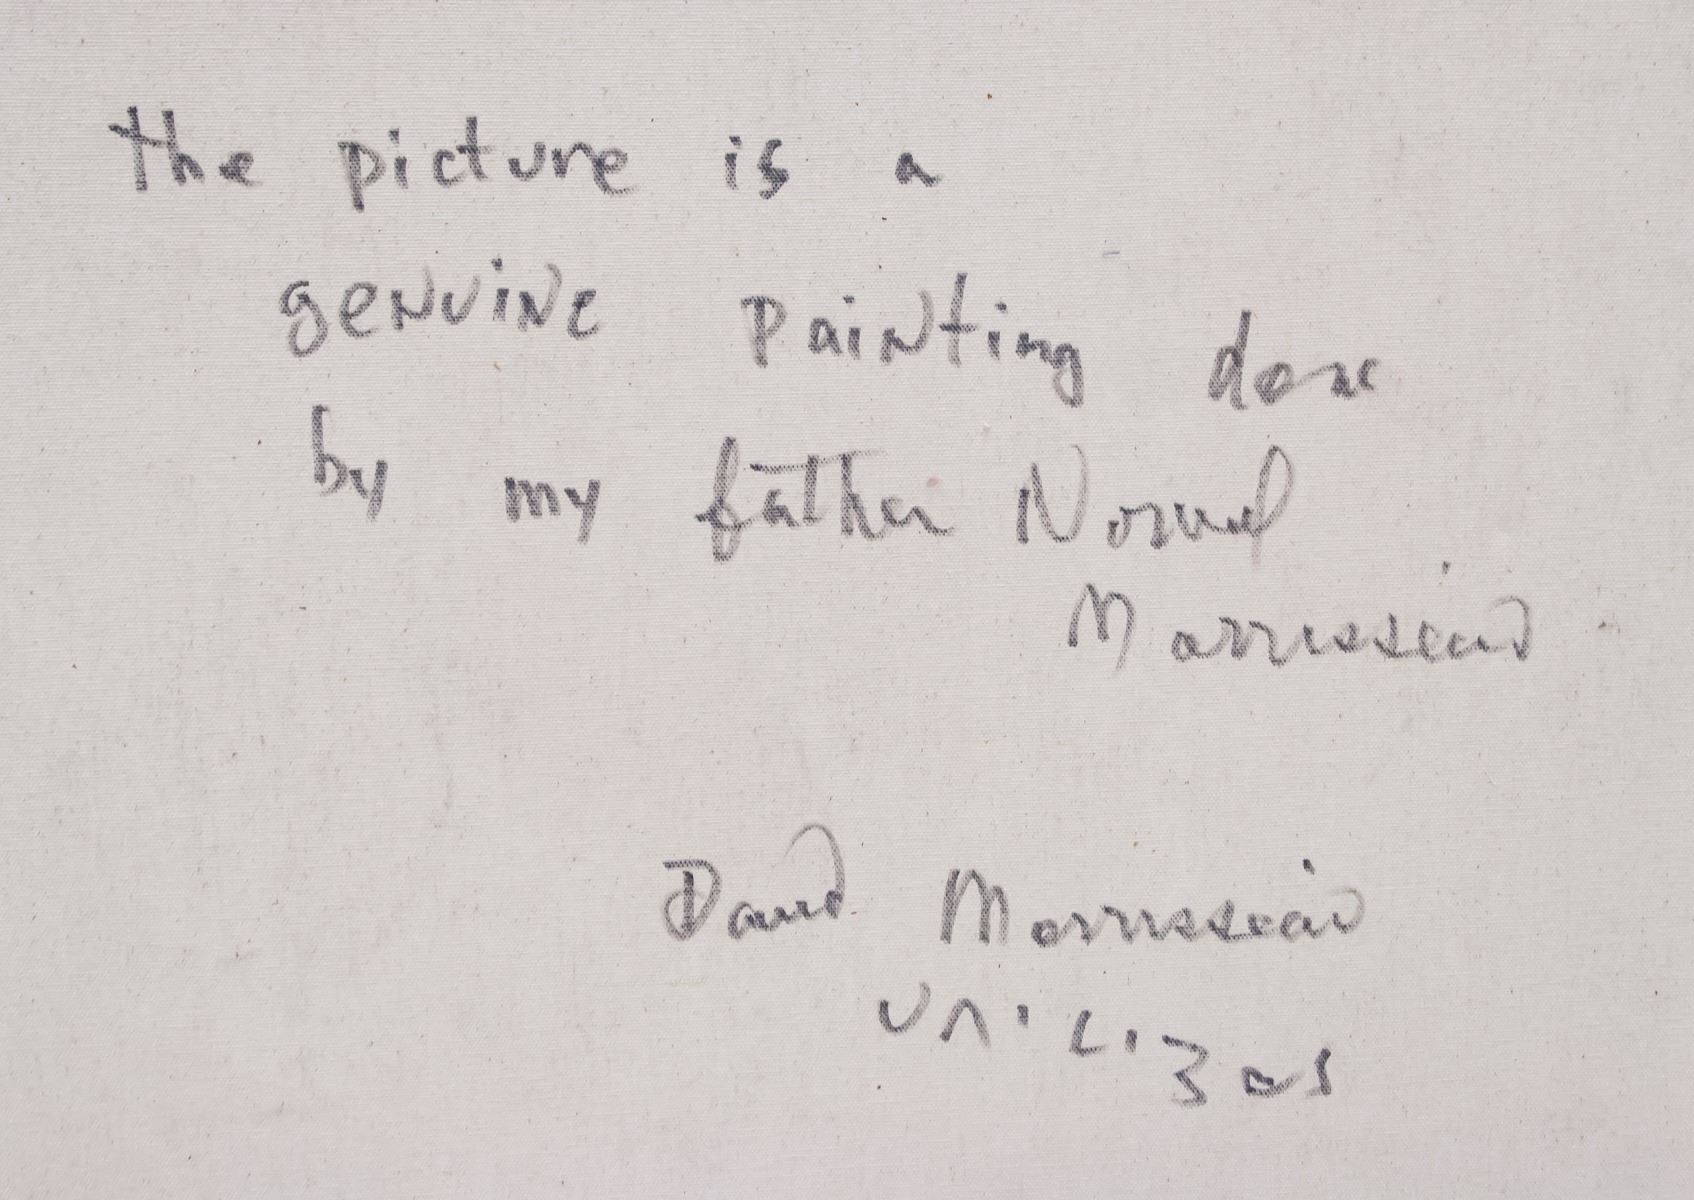 the picture is a
genuine painting done
by my father Norval
Morrisseau
David Morrisseau